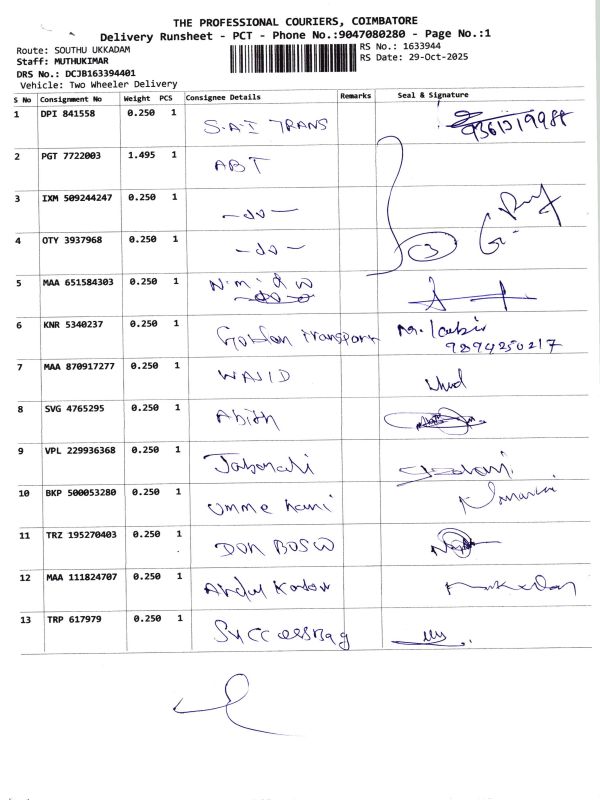 THE PROFESSIONAL COURIERS, COIMBATORE
Delivery Runsheet - PCT - Phone No.:9047080280 - Page No.:1
Route: SOUTHU UKKADAM
RS No.: 1633944
Staff: MUTHUKIMAR
RS Date: 29-Oct-2025
DRS No.: DCJB163394401
Vehicle: Two Wheeler Delivery
S No Consignment No Weight PCS Consignee Details Remarks Seal & Signature
1 DPI 841558 0.250 1 S.A.I TRANS
2 PGT 7722003 1.495 1 ABT
3 IXM 509244247 0.250 1 -do-
4 OTY 3937968 0.250 1 -do- 3
5 MAA 651584303 0.250 1
6 KNR 5340237 0.250 1 Golden Transport
9894250217
7 MAA 870917277 0.250 1 WAJID
8 SVG 4765295 0.250 1 Abith
9 VPL 229936368 0.250 1
10 BKP 500053280 0.250 1 Umme hani
11 TRZ 195270403 0.250 1 DON BOSCO
12 MAA 111824707 0.250 1 Abdul Kador
13 TRP 617979 0.250 1 Success Bag